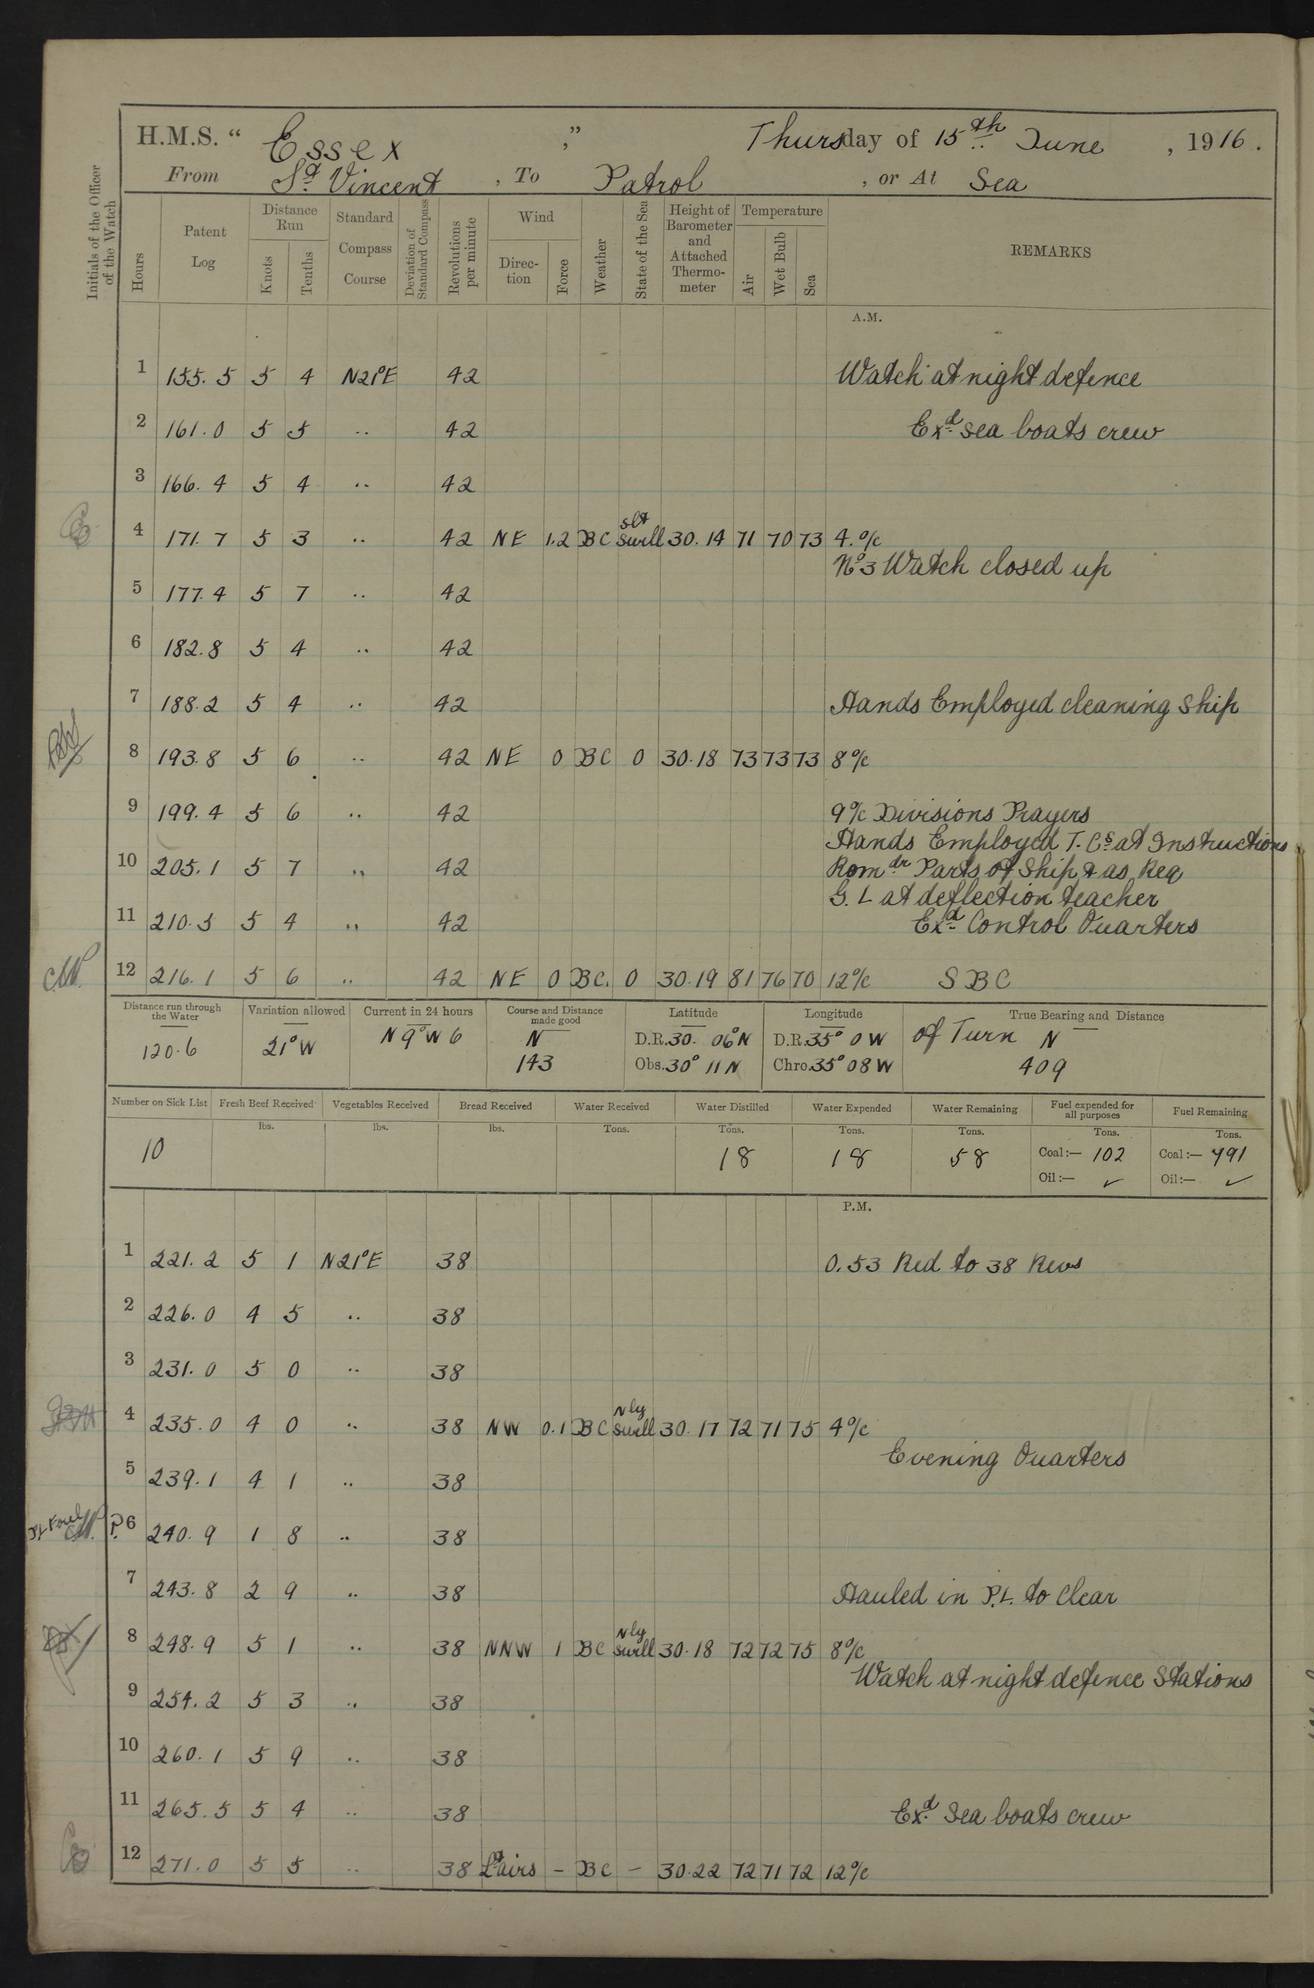 H.M.S. “ Essex ”, Thursday of 15th June, 1916.
From St Vincent, To Patrol, or At Sea
Initials of the Officer of the Watch
Hours Patent Log Distance Run Knots Tenths Standard Compass Course Deviation of Standard Compass Revolutions per minute Wind Direction Force Weather State of the Sea Height of Barometer and Attached Thermometer Temperature Air Wet Bulb Sea REMARKS
A.M.
1 155.5 5 4 N21°E 42 Watch at night defence
2 161.0 5 5 .. 42 Exd sea boats crew
3 166.4 5 4 .. 42
4 171.7 5 3 .. 42 NE 1.2 BC slt swell 30.14 71 70 73 4. o/c
No 3 Watch closed up
5 177.4 5 7 .. 42
6 182.8 5 4 .. 42
7 188.2 5 4 .. 42 Hands Employed cleaning Ship
8 193.8 5 6 .. 42 NE 0 BC 0 30.18 73 73 73 8 o/c
9 199.4 5 6 .. 42 9 o/c Divisions Prayers
Hands Employed T. Cs at Instructions
10 205.1 5 7 .. 42 Romdr Parts of Ship & as Req
G. L at deflection teacher
11 210.5 5 4 .. 42 Exd Control Quarters
12 216.1 5 6 .. 42 NE 0 BC. 0 30.19 81 76 70 12 o/c SBC
Distance run through the Water Variation allowed Current in 24 hours Course and Distance made good Latitude Longitude True Bearing and Distance
120.6 21°W N 9° W 6 N 143 D.R. 30. 06°N D.R. 35° 0 W of Turn N
Obs. 30° 11 N Chro. 35° 08 W 409
Number on Sick List Fresh Beef Received Vegetables Received Bread Received Water Received Water Distilled Water Expended Water Remaining Fuel expended for all purposes Fuel Remaining
lbs. lbs. lbs. Tons. Tons. Tons. Tons. Tons. Tons.
10 18 18 58 Coal:— 102 Coal:— 791
Oil:— ✓ Oil:— ✓
P.M.
1 221.2 5 1 N21°E 38 0.53 Red to 38 Revs
2 226.0 4 5 .. 38
3 231.0 5 0 .. 38
4 235.0 4 0 .. 38 NW 0.1 BC Nly swell 30.17 72 71 75 4 o/c
Evening Quarters
5 239.1 4 1 .. 38
P. 6 240.9 1 8 .. 38
7 243.8 2 9 .. 38 Hauled in P.L. to Clear
8 248.9 5 1 .. 38 NNW 1 BC Nly swell 30.18 72 72 75 8 o/c
Watch at night defence Stations
9 254.2 5 3 .. 38
10 260.1 5 9 .. 38
11 265.5 5 4 .. 38 Exd Sea boats crew
12 271.0 5 5 .. 38 Lt airs – BC – 30.22 72 71 72 12 o/c